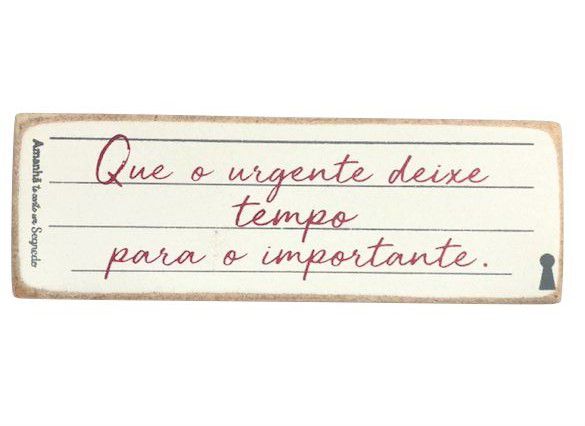 Que o urgente deixe
tempo
para o importante.
Amanhã te conto un Segredo